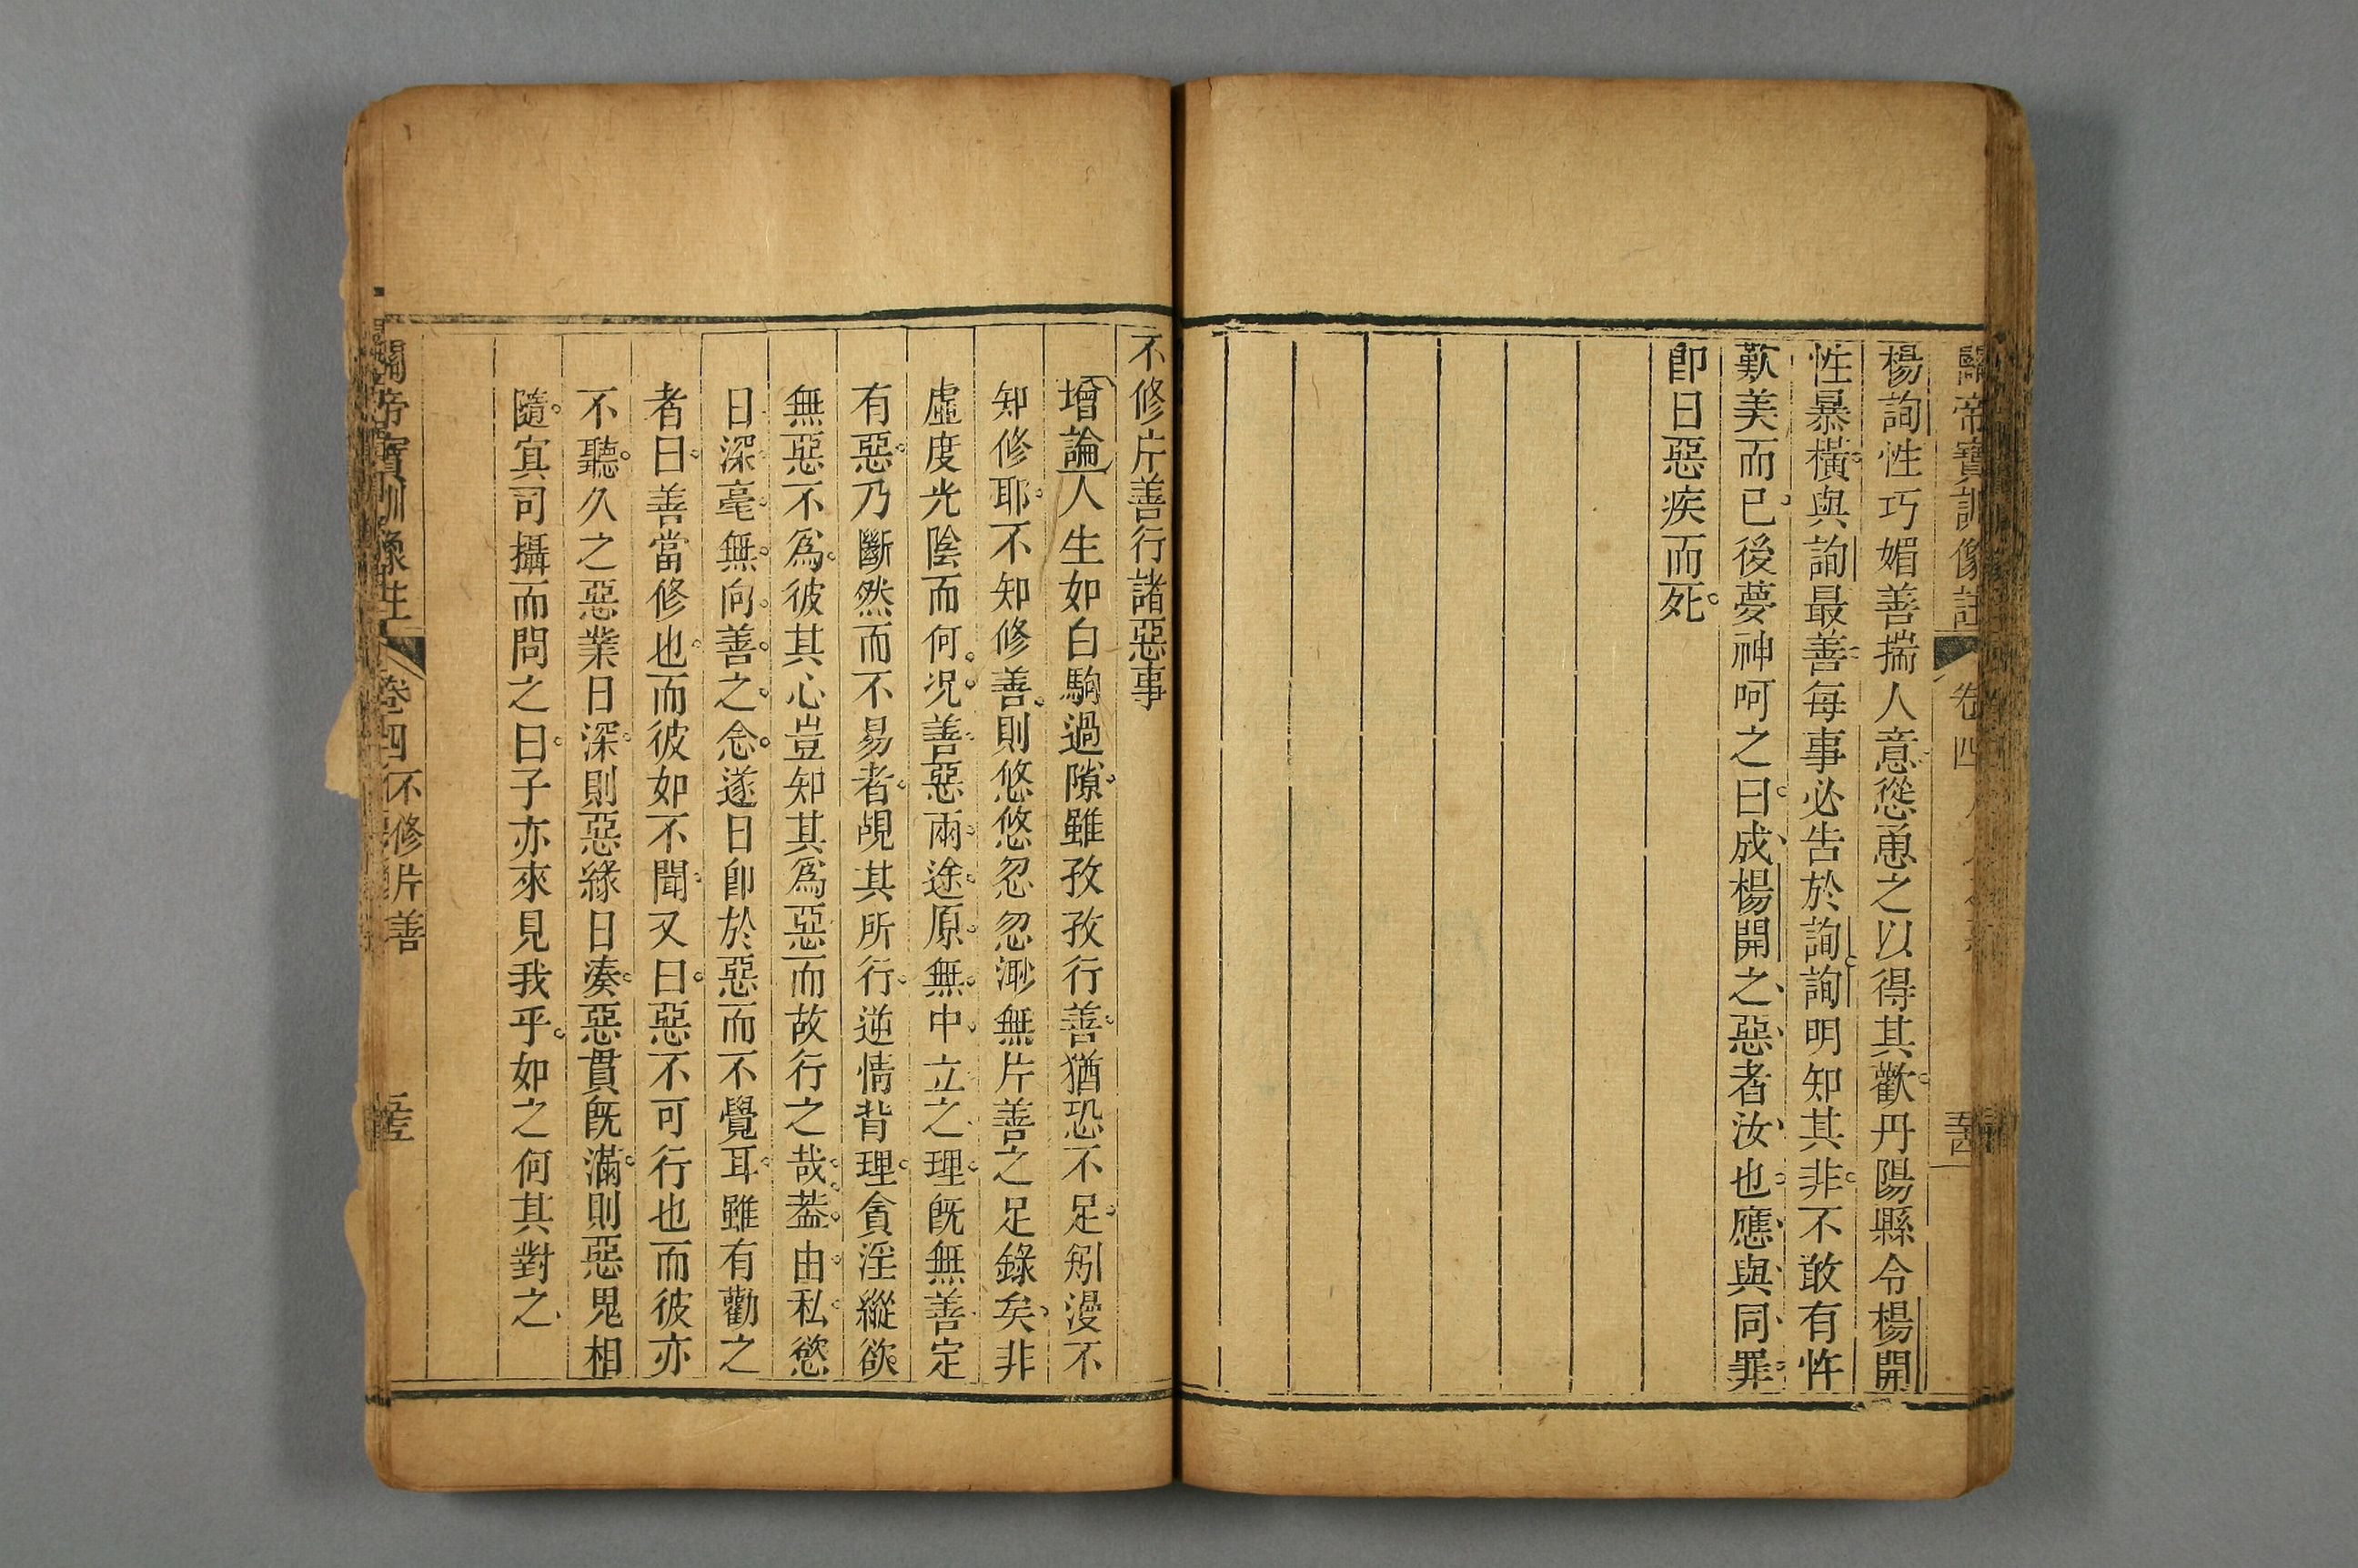 關帝寶訓像註 卷四 五十四
楊詢性巧媚善揣人意慫恿之以得其歡丹陽縣令楊開
性暴橫與詢最善每事必告於詢詢明知其非不敢有忤
歎美而已後夢神呵之曰成楊開之惡者汝也應與同罪
卽日惡疾而死
不修片善行諸惡事
增論人生如白駒過隙雖孜孜行善猶恐不足矧漫不
知修耶不知修善則悠悠忽忽渺無片善之足錄矣非
虛度光陰而何况善惡兩途原無中立之理旣無善定
有惡乃斷然而不易者覘其所行逆情背理貪淫縱欲
無惡不爲彼其心豈知其爲惡而故行之哉葢由私慾
日深毫無向善之念遂日卽於惡而不覺耳雖有勸之
者曰善當修也而彼如不聞又曰惡不可行也而彼亦
不聽久之惡業日深則惡緣日湊惡貫旣滿則惡鬼相
隨冥司攝而問之曰子亦來見我乎如之何其對之
關帝寶訓像註 卷四不修片善 五十五